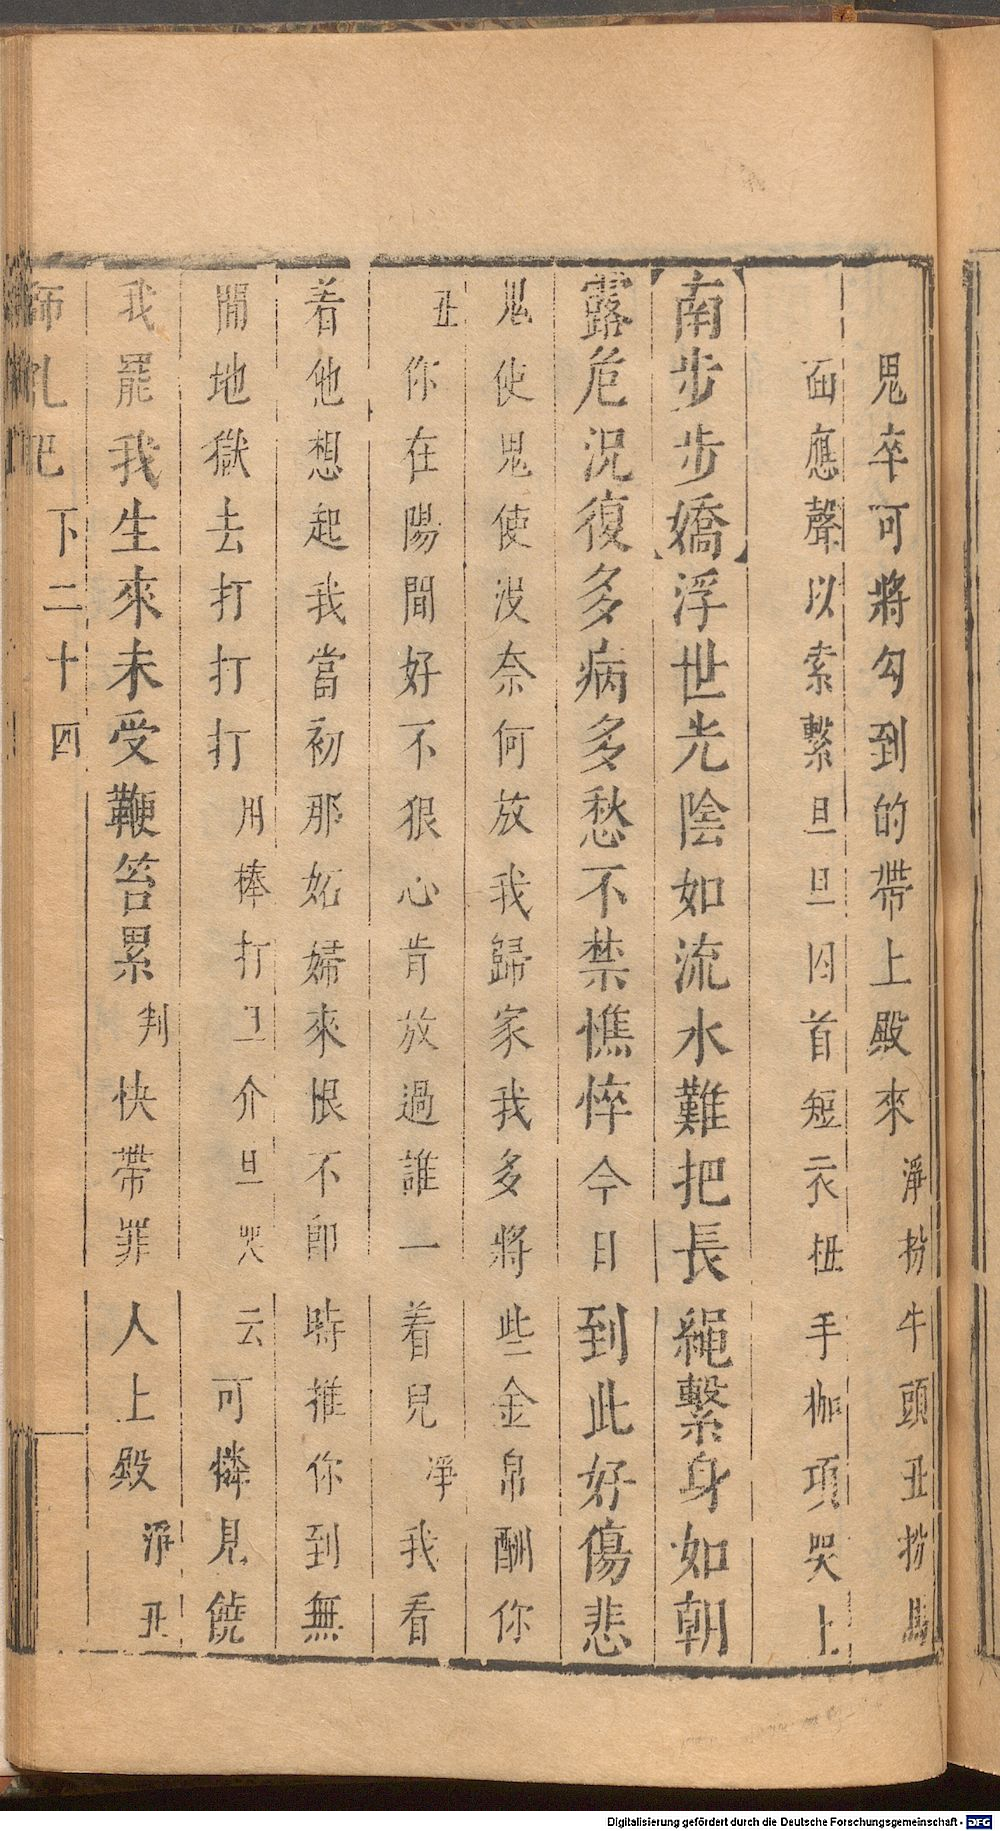 鬼卒可將勾到的帶上殿來淨扮牛頭丑扮馬
面應聲以索繫旦旦囚首短衣杻手枷項哭上
【南步步嬌】浮世光陰如流水難把長繩繫身如朝
露危況復多病多愁不禁憔悴今日到此好傷悲
鬼使鬼使沒奈何放我歸家我多將些金帛酬你
丑你在陽間好不狠心肯放過誰一着兒淨我看
着他想起我當初那妬婦來恨不卽時推你到無
間地獄去打打打用棒打介旦哭云可憐見饒
我罷我生來未受鞭笞累判快帶罪人上殿淨丑
師
下二十四
Digitalisierung gefördert durch die Deutsche Forschungsgemeinschaft - DFG